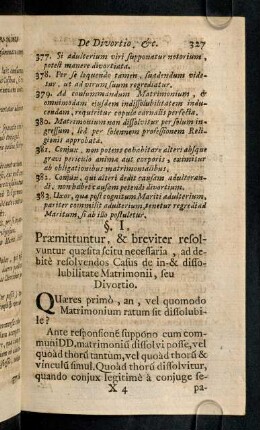 De Divortio, &c. 327
377. Si adulterium viri supponatur notorium,
potest manere divertiata.
378. Per se loquendo tamen, suadendum vide-
tur, ut ad virum suum regrediatur.
379. Ad consummandum Matrimonium, &
omnimodam ejusdem indissolubilitatem indu-
cendam, requiritur copula carnalis perfecta.
380. Matrimonium non dissolvitur per solum in-
gressum, sed per solemnem professionem Reli-
gioni approbatâ.
381. Conjux, non potens cohabitare alteri absque
gravi periculo anima aut corporis, eximitur
ab obligationibus matrimonialibus.
382. Conjux, qui alteri dedit causam adulteran-
di, non habet causam petendi divortium.
383. Uxor, qua post cognitum Mariti adulterium,
pariter commisit adulterium, tenetur regredi ad
Maritum, si ab illo postuletur.
§. I.
Præmittuntur, & breviter resol-
vuntur quæsita scitu necessaria, ad de-
bitè resolvendos Casus de in- & disso-
lubilitate Matrimonii, seu
Divortio.
Quæres primò, an, vel quomodo
Matrimonium ratum sit dissolubi-
le?
Ante responsionē suppono cum com-
muni DD. matrimoniū dissolvi posse, vel
quoàd thorū tantum, vel quoàd thorū &
vinculū simul. Quoàd thorū dissolvitur,
quando conjux legitimè à conjuge se-
X 4 pa-